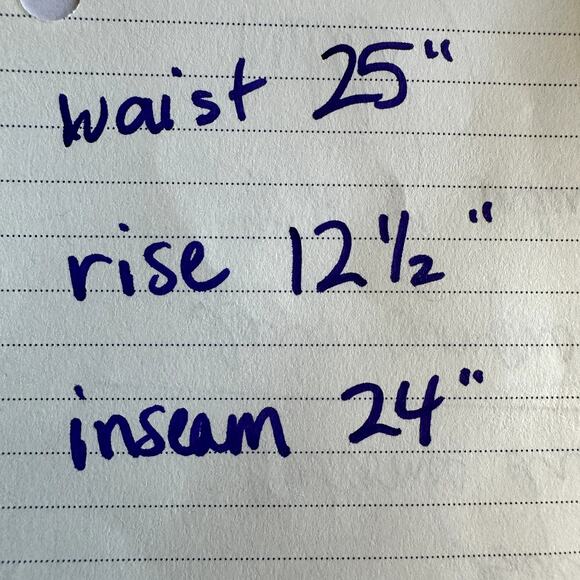 waist 25"
rise 12 1/2"
inseam 24"